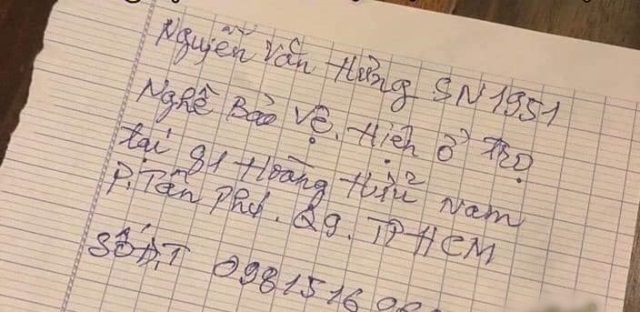 Nguyễn Văn Hùng SN 1951
Nghề Bảo Vệ. Hiện ở Trọ
tại 81 Hoàng Hữu Nam
P. Tân Phú. Q9. TPHCM
SỐ Đ.T 0981516